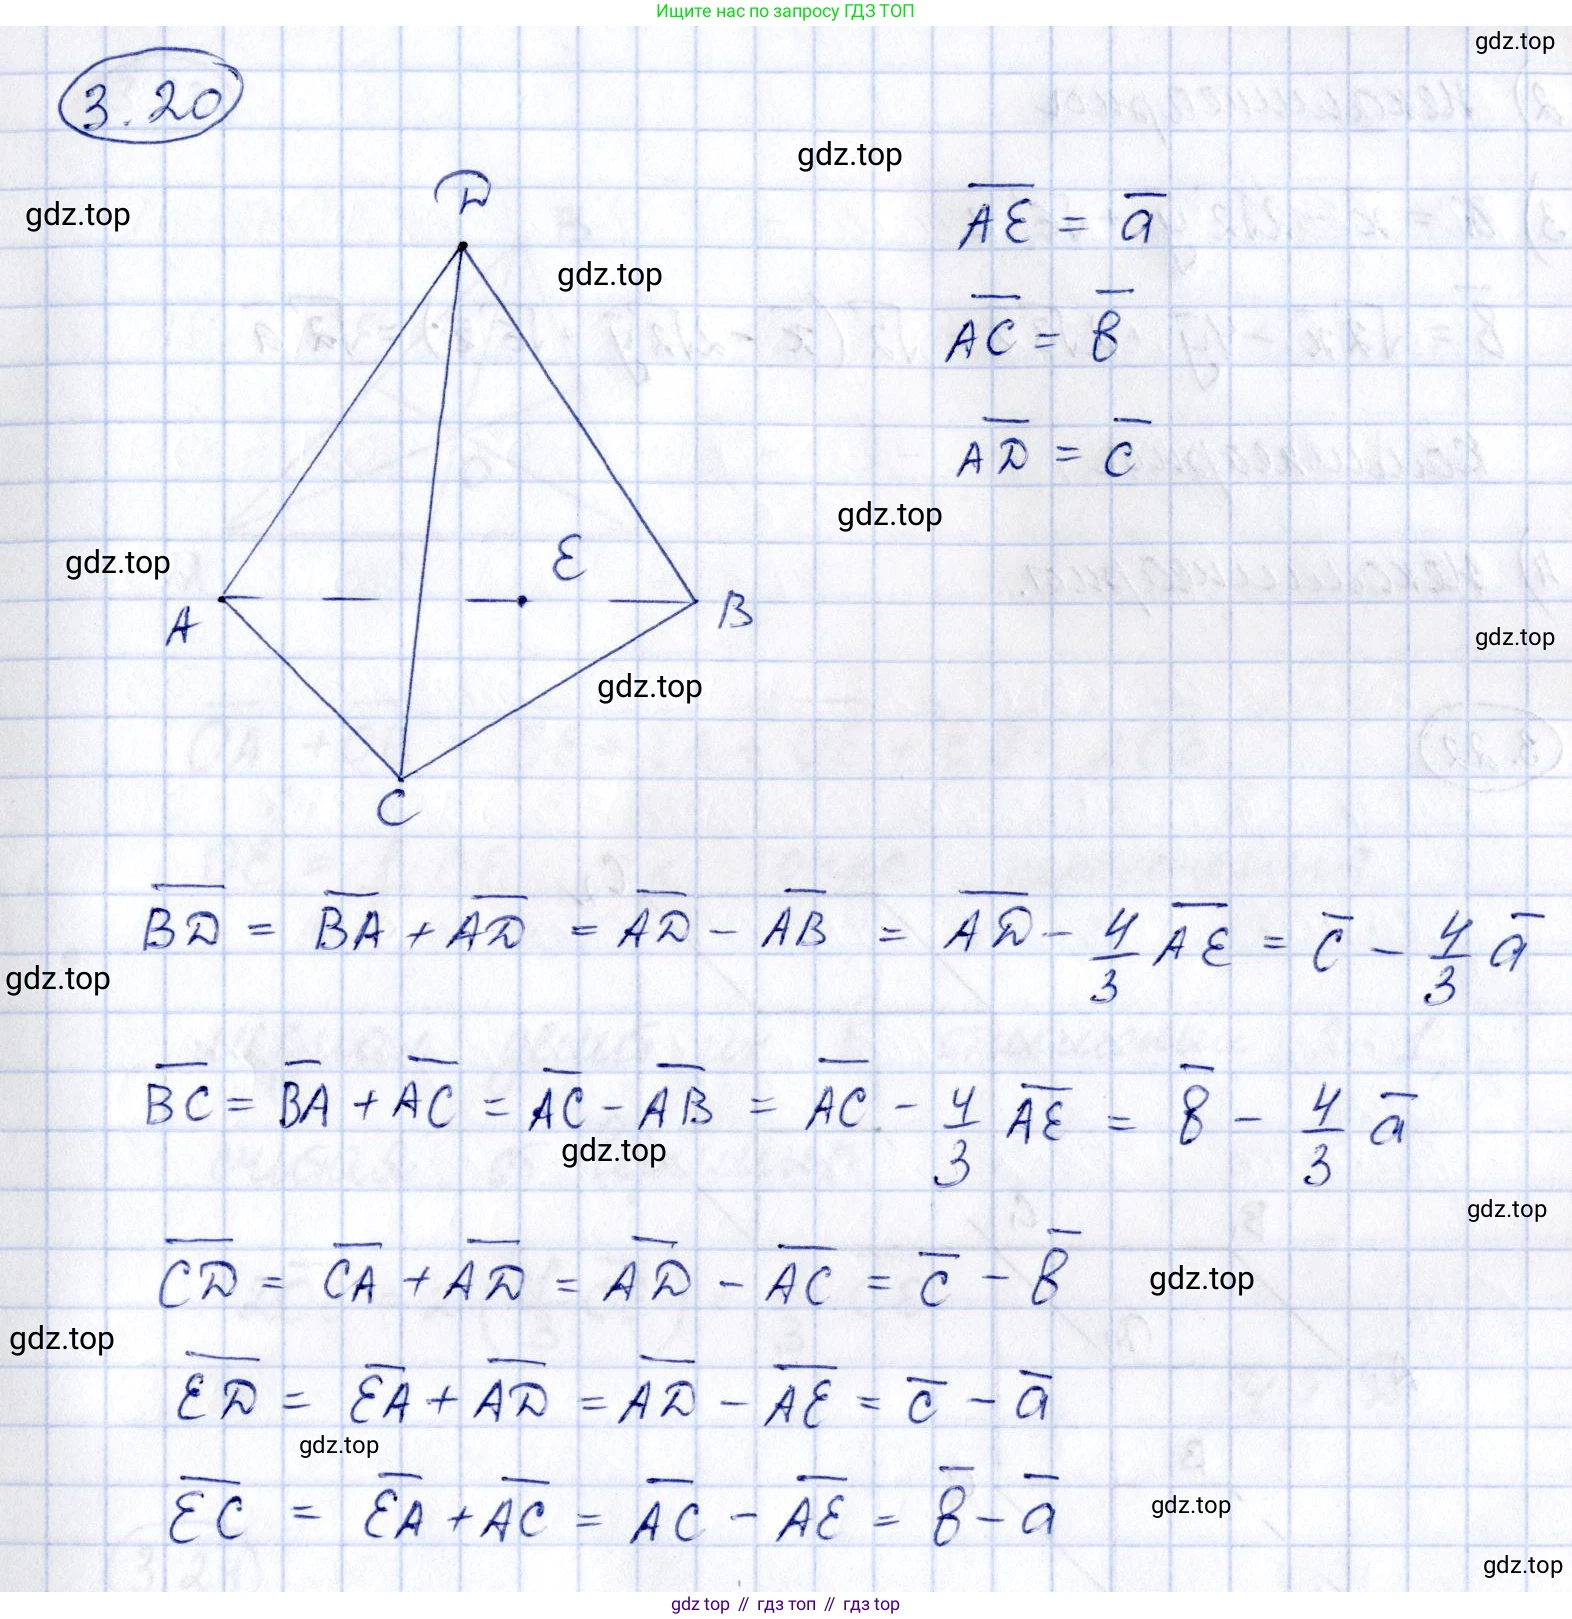 Ищите нас по запросу ГДЗ ТОП
gdz.top
3.20
gdz.top
gdz.top
D
gdz.top
A͞E͞ = a̅
A͞C͞ = b̅
A͞D͞ = c̅
gdz.top
gdz.top
E
A
B
gdz.top
gdz.top
C
B͞D͞ = B͞A͞ + A͞D͞ = A͞D͞ - A͞B͞ = A͞D͞ - 4/3 A͞E͞ = c̅ - 4/3 a̅
gdz.top
B͞C͞ = B͞A͞ + A͞C͞ = A͞C͞ - A͞B͞ = A͞C͞ - 4/3 A͞E͞ = b̅ - 4/3 a̅
gdz.top
gdz.top
C͞D͞ = C͞A͞ + A͞D͞ = A͞D͞ - A͞C͞ = c̅ - b̅
gdz.top
gdz.top
E͞D͞ = E͞A͞ + A͞D͞ = A͞D͞ - A͞E͞ = c̅ - a̅
gdz.top
E͞C͞ = E͞A͞ + A͞C͞ = A͞C͞ - A͞E͞ = b̅ - a̅
gdz.top
gdz.top
gdz top // гдз топ // гдз top